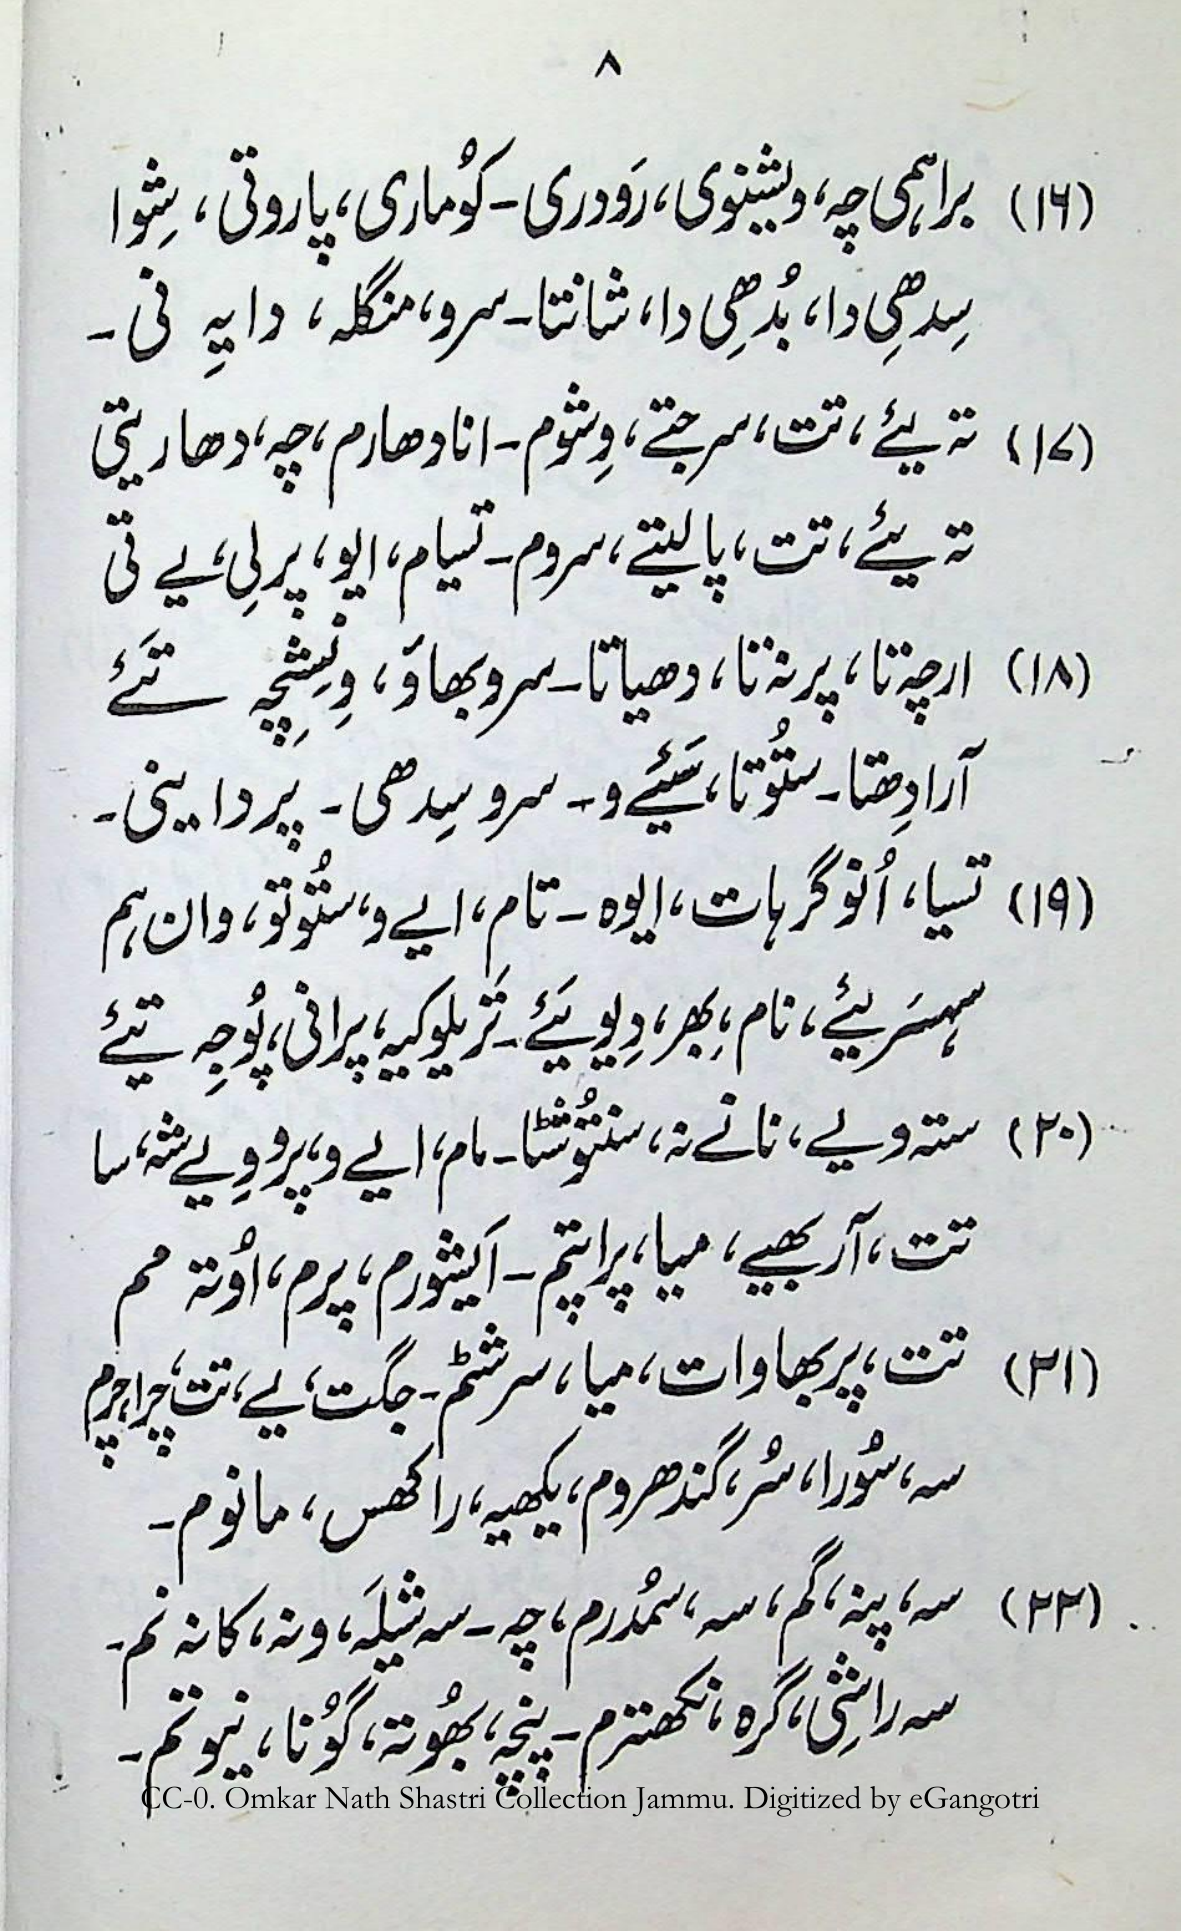 ۸
(۱۶) براہمی چہ، ویشنوی، رَودری۔ کوُماری، پاروتی، شِوا
سِدھِی دا، بُدھِی دا، شانتا۔ سرو، منگلہ، دایہِ نی۔
(۱۷) تہ یئے، تت، سرجتے، وِشوم۔ انادھارم، چہ، دھاریتی
تہ یئے، تت، پالیتے، سروم۔ تسیام، ایو، پرلِی، یے تی
(۱۸) ارچہ تا، پرنہ تا، دھیاتا۔ سروبھاوَ، وِنِشچِہ تَئے
آرادِھتا۔ ستُوتا، سَیئے و۔ سرو سِدھی۔ پردایینی۔
(۱۹) تسیا، اُنوگرہات، ایوہ۔ تام، ایے و، ستُوتو، وان ہم
سہسَریئے، نام، بِھر، دِیویَئے۔ تَریلوکیہ، پرانی، پُوجِہ تیئے
(۲۰) ستہ ویے، نانے نہ، سنتُوشٹا۔ مام، ایے و، پروویِے شہ، سا
تت، آربھیے، میا، پراپتم۔ اَیشورم، پرم، اوُتہ مم
(۲۱) تت، پربھاوات، میا، سرشٹم۔ جگت، یے، تت، چراچرم
سہ، سُورا، سُر، گندھروم، یکھیہ، راکھس، مانوم۔
(۲۲) سہ، پنہ، گم، سہ، سمُدرم، چہ۔ سہ شیلَہ، ونہ، کانہ نم۔
سہ راشِی، گرہ، نکھترم۔ پنچہ، بھُوتہ، گوُنا، نیوتم۔
CC-0. Omkar Nath Shastri Collection Jammu. Digitized by eGangotri